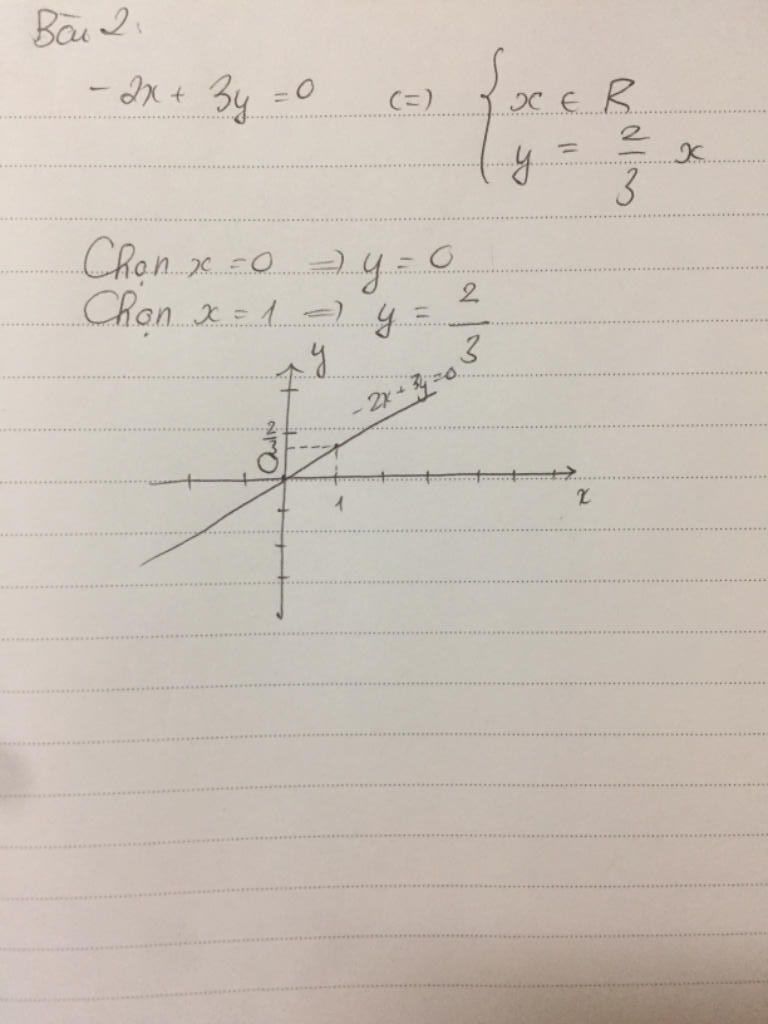 Bài 2:
-2x + 3y = 0 (=) { x ∈ R
y = 2/3 x
Chọn x = 0 => y = 0
Chọn x = 1 => y = 2/3
y
-2x + 3y = 0
2/3
O
1
x